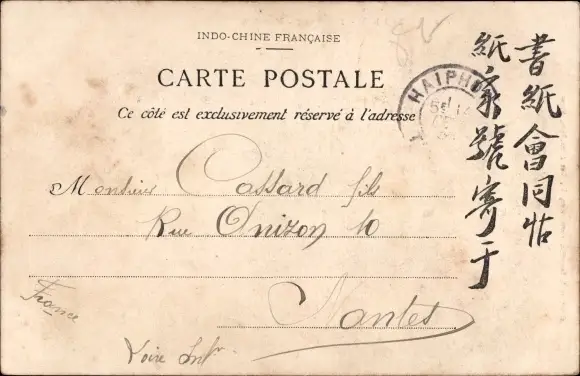 INDO-CHINE FRANÇAISE
CARTE POSTALE
Ce côté est exclusivement réservé à l'adresse
HAIPHO
Monsieur Cassard fils
Rue Onizon 10
Nantes
France
Voire
書紙會同帖
紙家號寄于